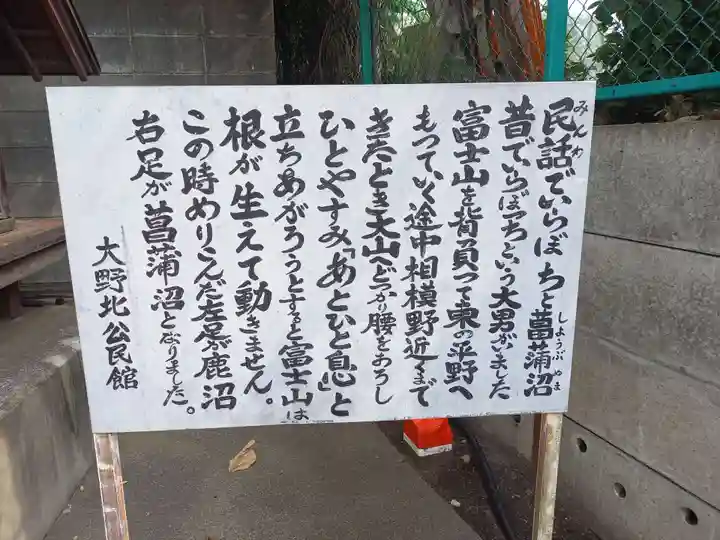 民話でいらぼちと菖蒲沼
みんわ
しようぶ やま
昔でいらぼっちという大男がいました
富士山を背負って東の平野へ
もっていく途中相模野近くまで
きたとき大山へどっかり腰をおろし
ひとやすみ「あとひと息」と
立ちあがろうとすると富士山は
根が生えて動きません。
この時めりこんだ左足が鹿沼
右足が菖蒲沼となりました。
大野北公民館